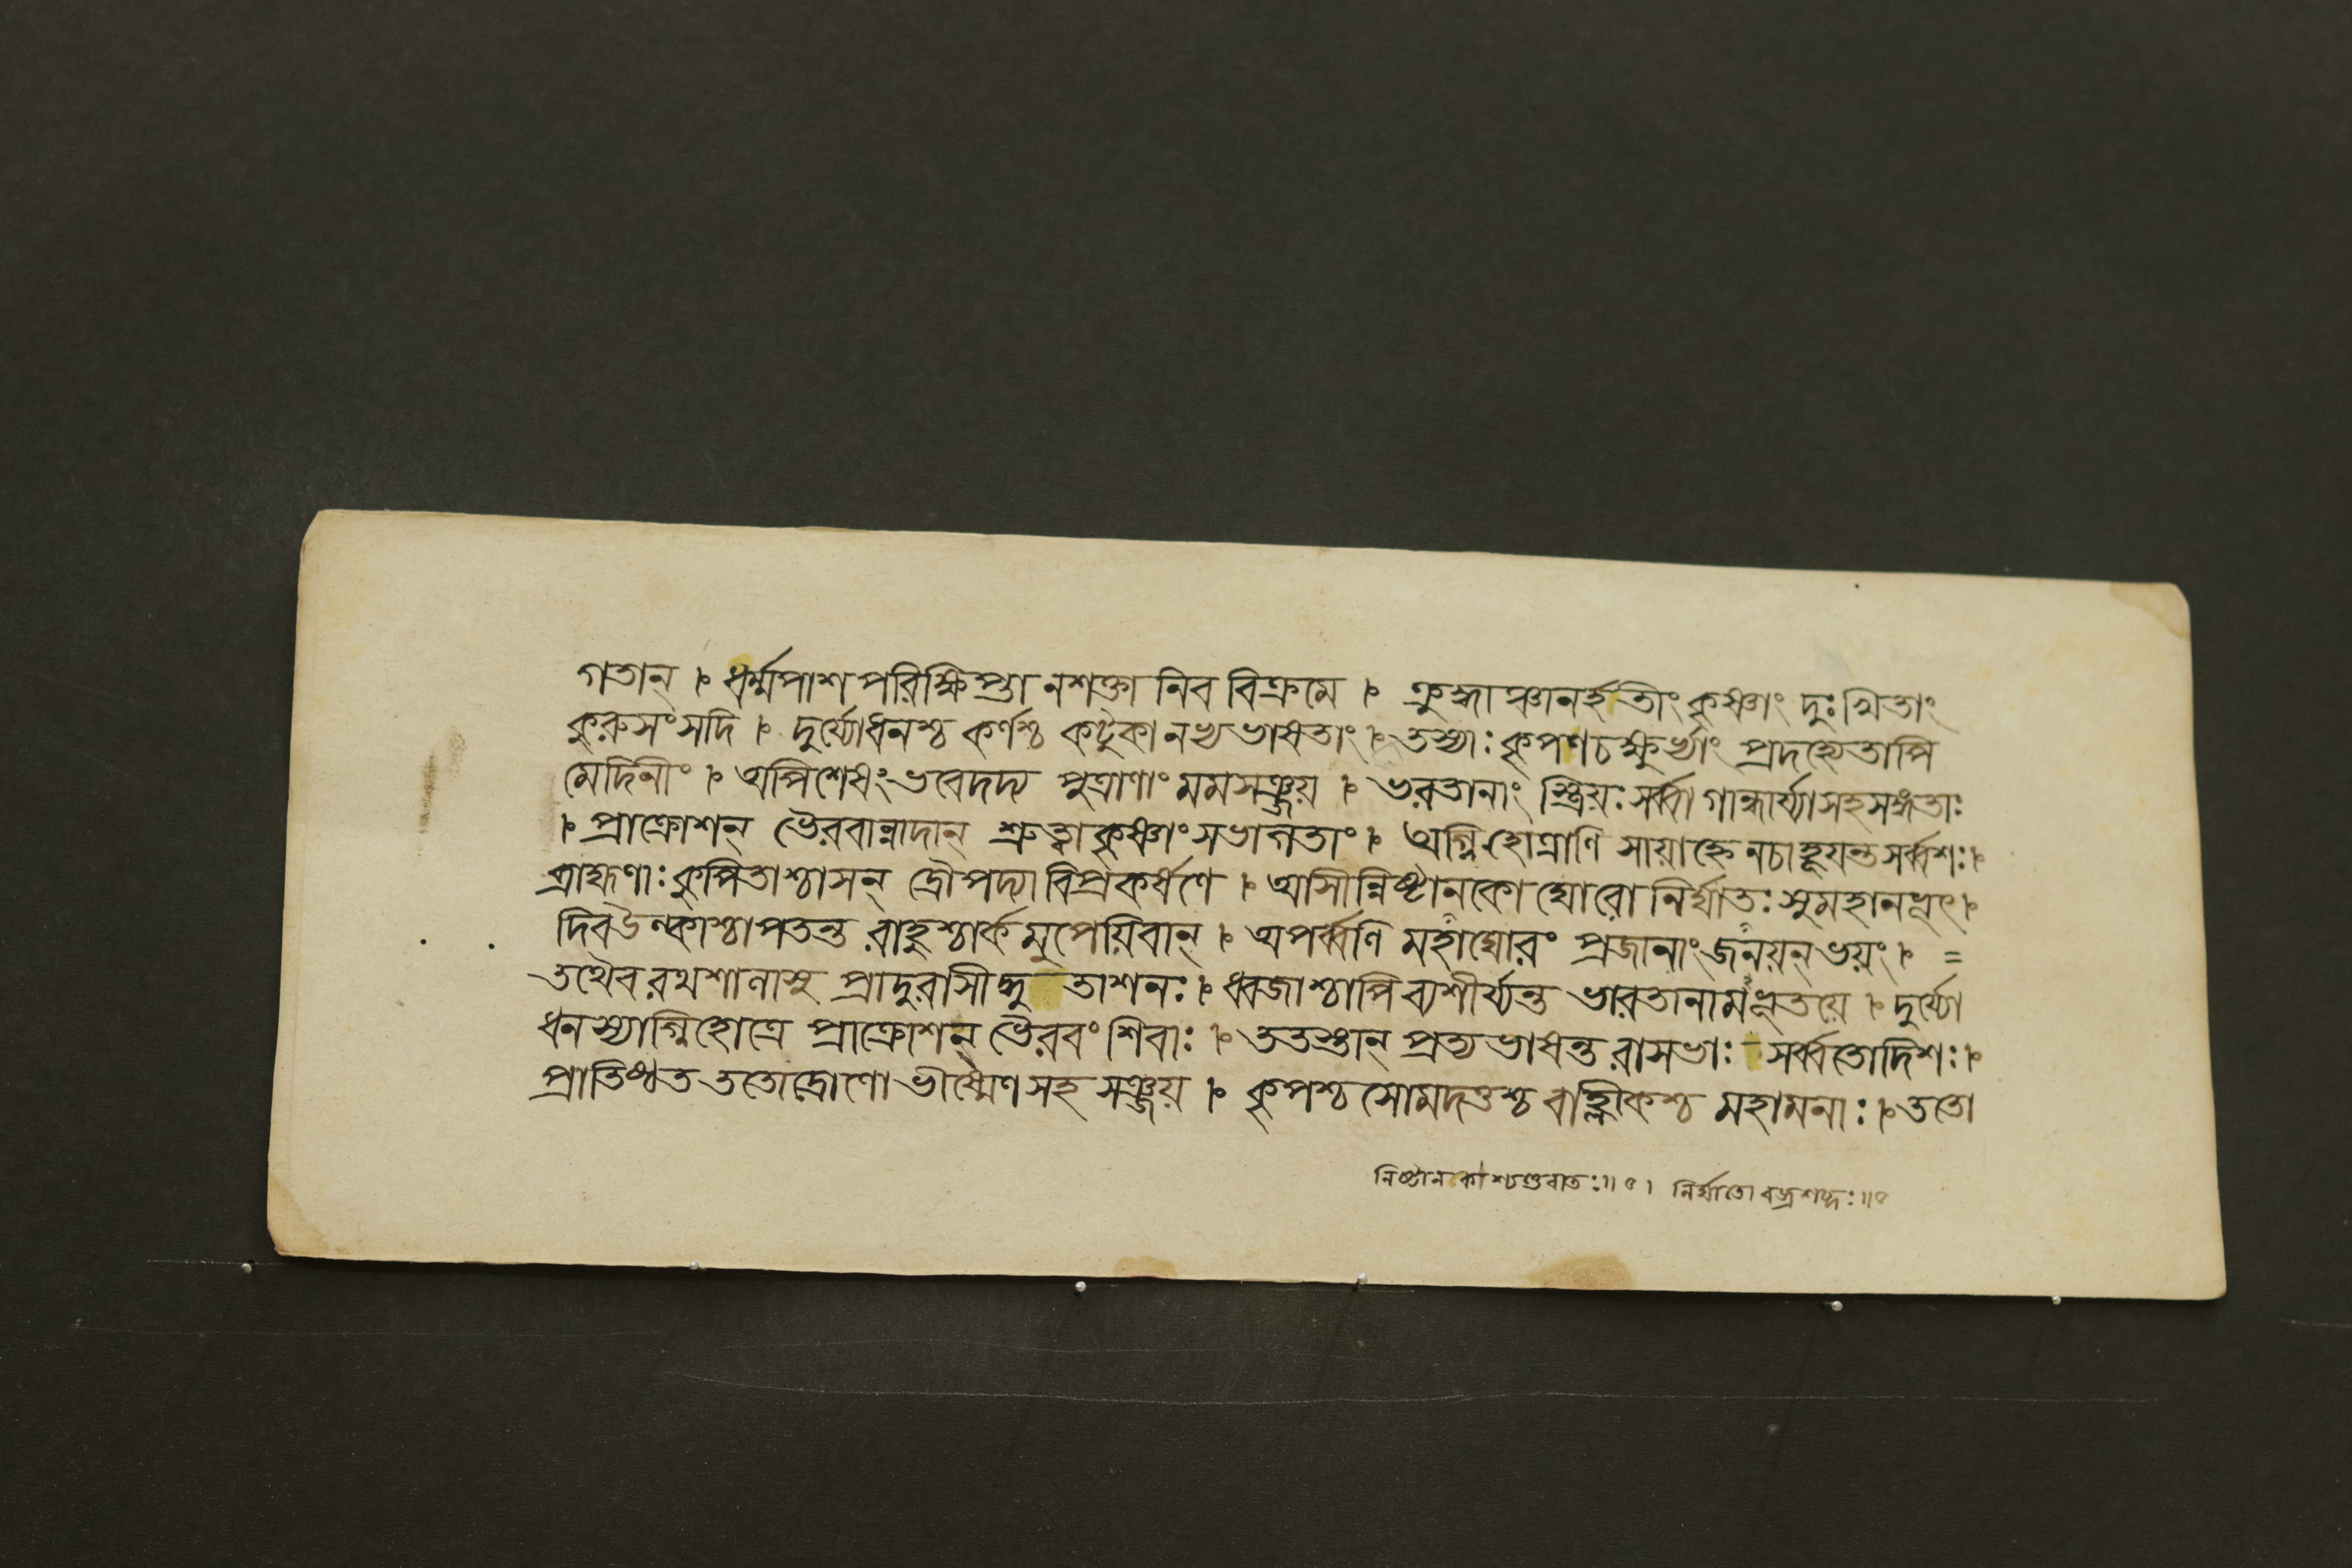 গতান্ । ধর্ম্মপাশপরিক্ষিপ্তা নশক্তা নিব বিক্রমে । ক্রুদ্ধাঞ্চানর্হতীং কৃষ্ণাং দুঃখিতাং
কুরুসংসদি । দুর্য্যোধনশ্চ কর্ণশ্চ কটুকানভ্যভাষতাং । তস্যাঃ কৃপণচক্ষুর্ভ্যাং প্রদহ্যেতাপি
মেদিনীং । অপিশেষং ভবেদদ্য পুত্রাণাং মমসঞ্জয় । ভরতানাং স্ত্রিয়ঃ সর্ব্বা গান্ধার্য্যাসহসঙ্গতাঃ
। প্রাক্রোশন্ ভৈরবান্নাদান্ শ্রুত্বাকৃষ্ণাং সভাগতাং । অগ্নিহোত্রাণি সায়াহ্নে নচাহূয়ন্ত সর্ব্বশঃ ।
ব্রাহ্মণাঃ কুপিতাশ্চাসন্ দ্রৌপদ্যা বিপ্রকর্ষণে । আসীন্নিষ্টানকো ঘোরো নির্ঘাতঃ সুমহানভূৎ ।
দিবউল্কাশ্চাপতন্ত রাহুশ্চার্কমুপেয়িবান্ । অপর্ব্বণি মহাঘোরং প্রজানাং জনয়ন্ ভয়ং । =
তথৈব রথশালাসু প্রাদুরাসীদ্ধু তাশনঃ । ধ্বজাশ্চাপি ব্যশীর্য্যন্ত ভারতানামভূতয়ে । দুর্য্যো
ধনস্যাগ্নিহোত্রে প্রাক্রোশন্ ভৈরবং শিবাঃ । ততস্তান্ প্রত্যভাষন্ত রাসভাঃ সর্ব্বতোদিশঃ ।
প্রাতিষ্ঠত ততোদ্রোণো ভীষ্মেণ সহ সঞ্জয় । কৃপশ্চ সোমদত্তশ্চ বাহ্লীকশ্চ মহামনাঃ । ততো
নিষ্টানকা শ্চণ্ডবাতঃ ॥ ৫ । নির্ঘাতো বজ্রশব্দঃ ॥ ৫